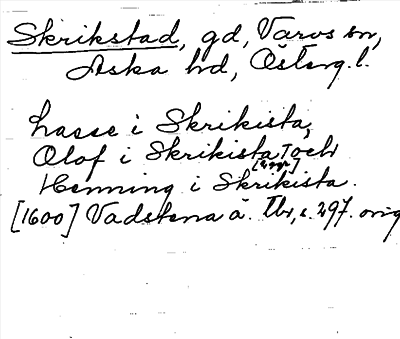 Skrikstad, gd, Varvs sn,
Aska hd, Österg. l.
Lasse i Skrikista,
Olof i Skrikista och
Henning i Skrikista.
[1600] Vadstena ä. Tb, s. 297. orig